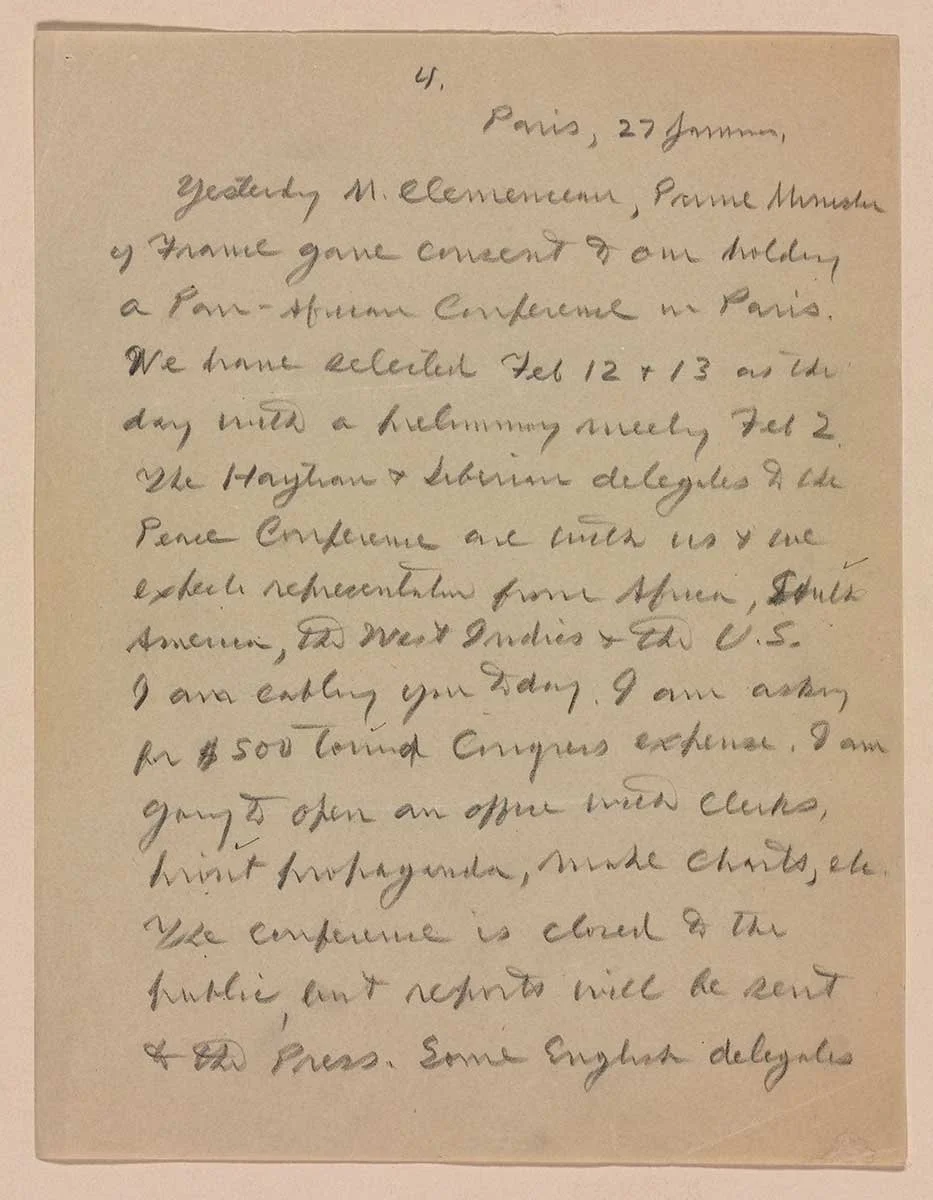 4.
Paris, 27 January,
Yesterday M. Clemenceau, Prime Minister
of France gave consent to our holding
a Pan-African Conference in Paris.
We have selected Feb 12 + 13 as the
day with a preliminary meeting Feb 2.
The Haytian + Liberian delegates to the
Peace Conference are with us + we
expect representation from Africa, South
America, the West Indies + the U.S.
I am cabling you today. I am asking
for $500 toward Congress expense. I am
going to open an office with clerks,
print propaganda, make charts, etc.
The conference is closed to the
public, but reports will be sent
to the Press. Some English delegates